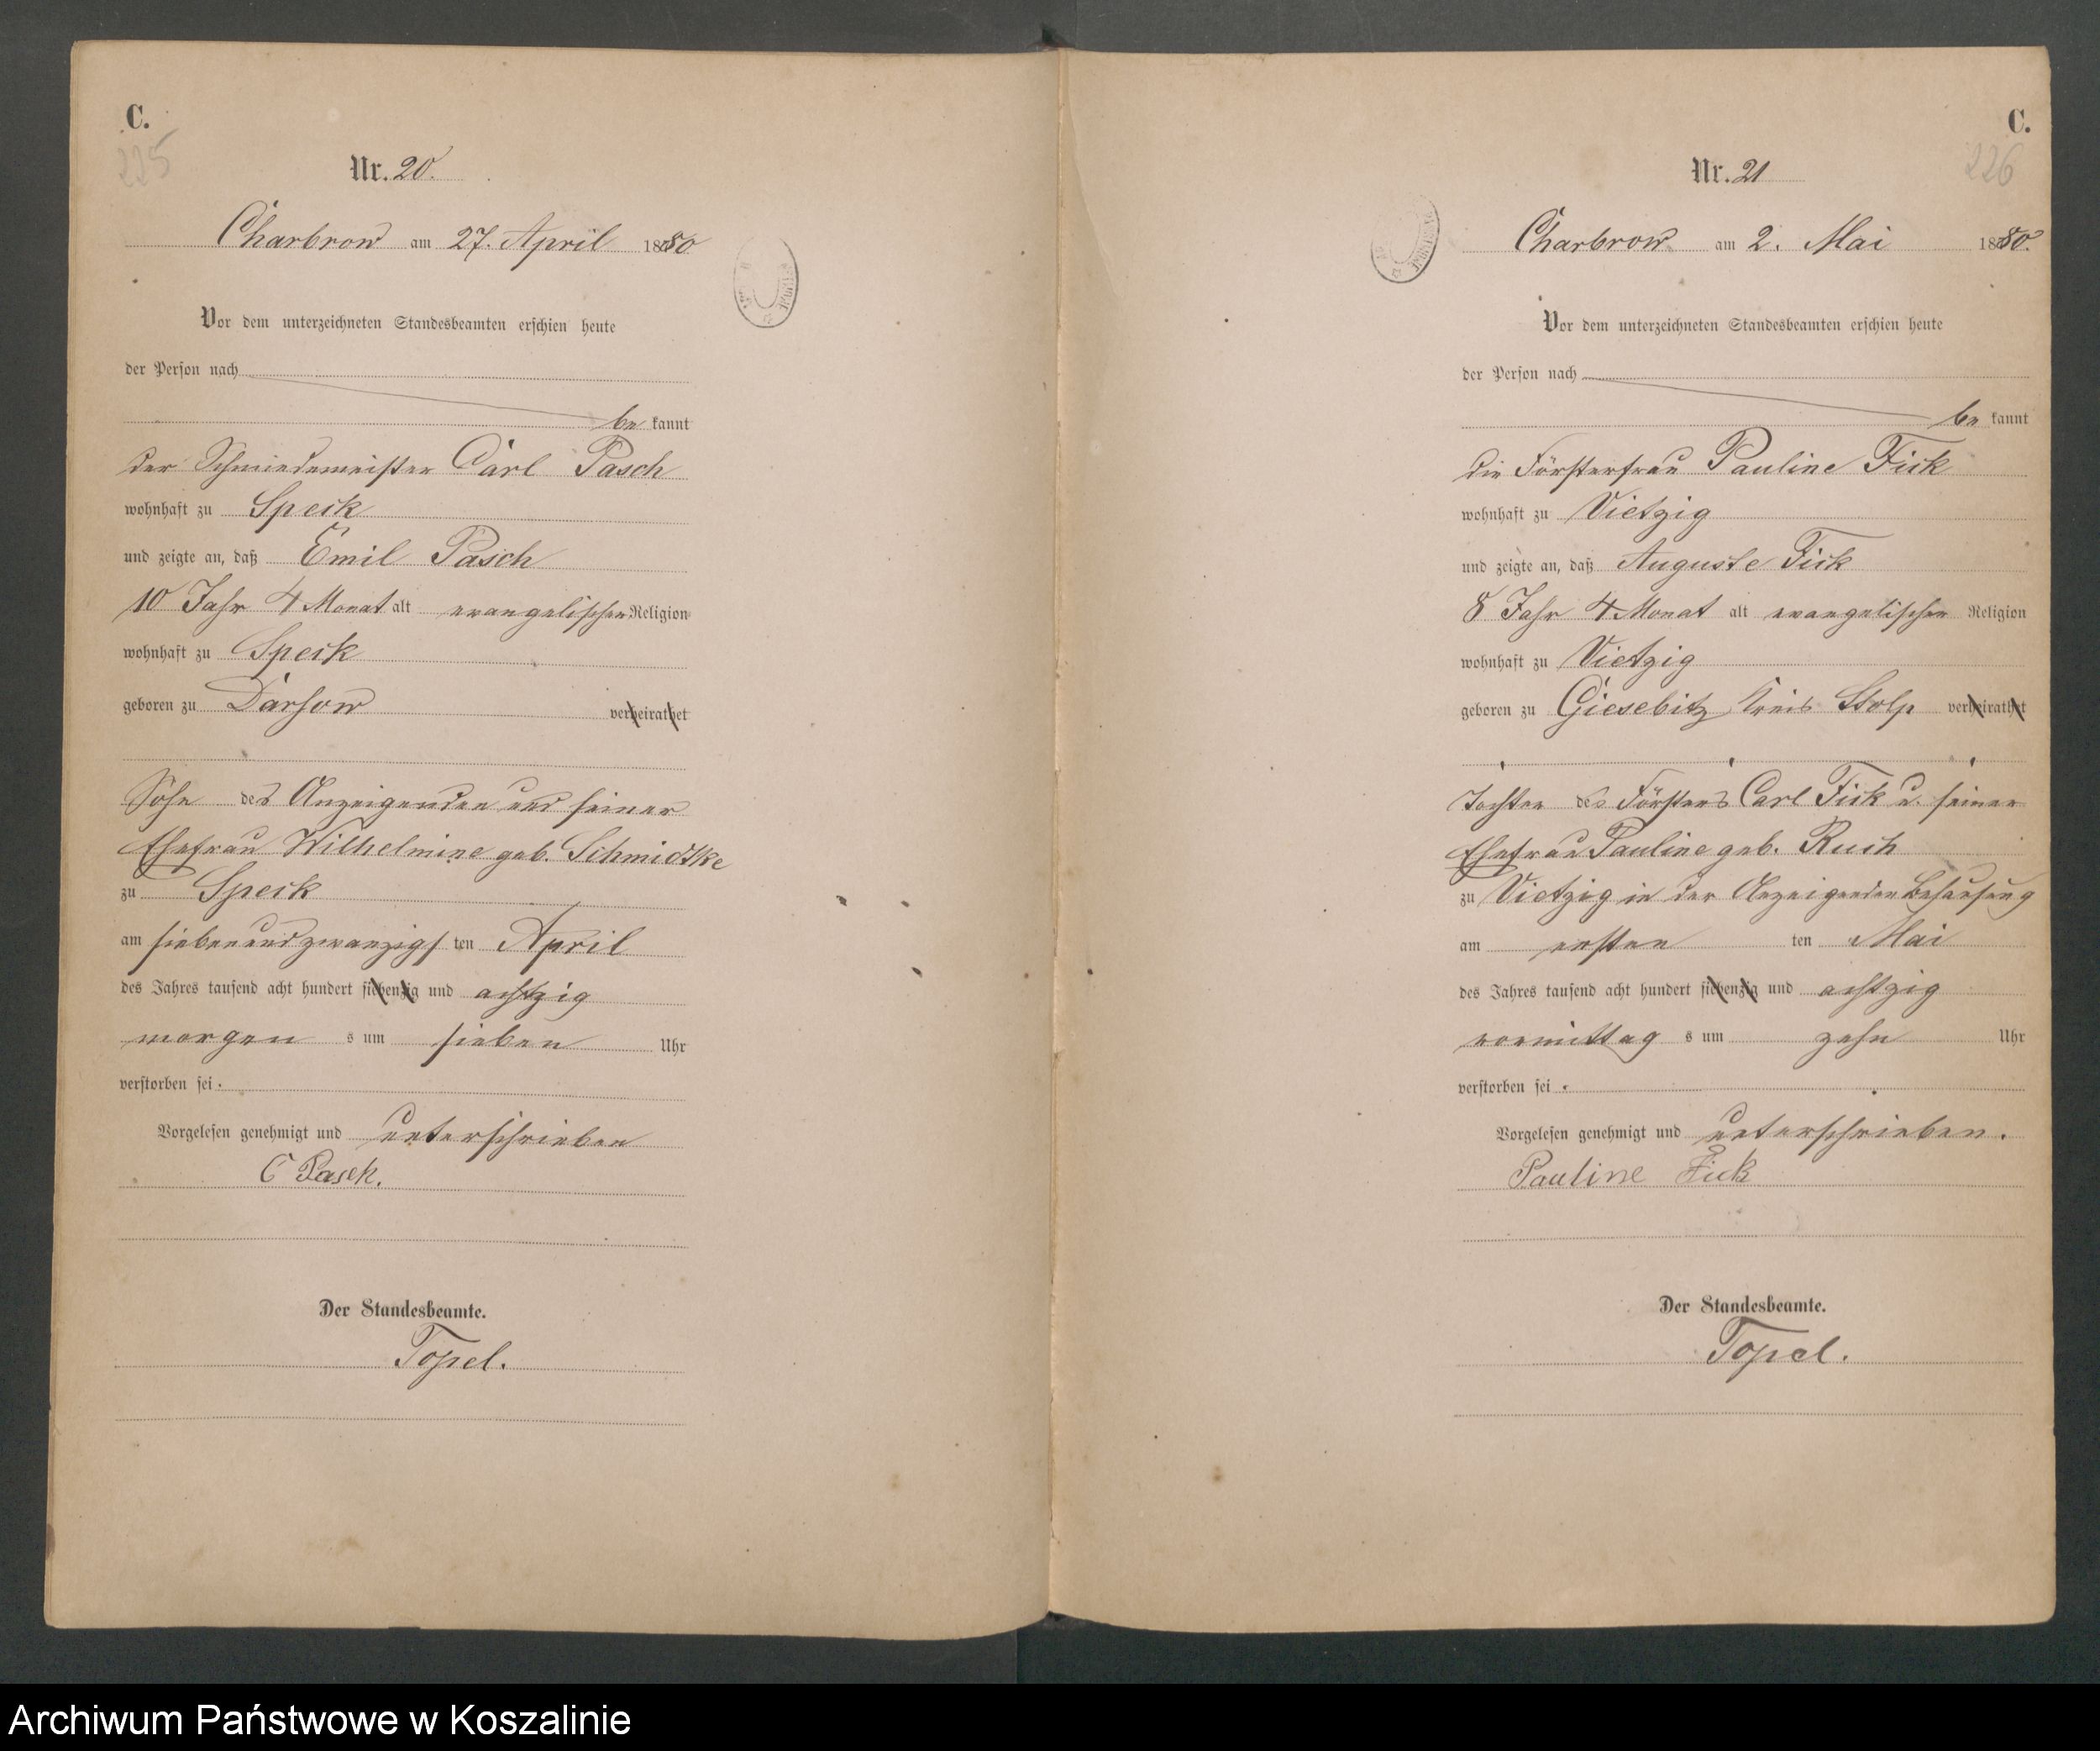 C.
225
Nr. 20.
Charbrow am 27. April 1880
Vor dem unterzeichneten Standesbeamten erschien heute
der Person nach
be kannt
der Schmiedemeister Carl Pasch
wohnhaft zu Speck
und zeigte an, daß Emil Pasch
10 Jahr 4 Monat alt evangelischer Religion
wohnhaft zu Speck
geboren zu Darsow verheirathet
Sohn des Anzeigenden und seiner
Ehefrau Wilhelmine geb. Schmidtke
zu Speck
am siebenundzwanzigs ten April
des Jahres tausend acht hundert siebenzig und achtzig
morgen s um sieben Uhr
verstorben sei.
Vorgelesen genehmigt und unterschrieben
C Pasch.
Der Standesbeamte.
Topel.
C.
226
Nr. 21
Charbrow am 2. Mai 1880.
Vor dem unterzeichneten Standesbeamten erschien heute
der Person nach
be kannt
die Försterfrau Pauline Fick
wohnhaft zu Vietzig
und zeigte an, daß Auguste Fick
8 Jahr 4 Monat alt evangelischer Religion
wohnhaft zu Vietzig
geboren zu Giesebitz Kreis Stolp verheirathet
Tochter des Försters Carl Fick u. seiner
Ehefrau Pauline geb. Ruch
zu Vietzig in der Anzeigenden Behausung
am ersten ten Mai
des Jahres tausend acht hundert siebenzig und achtzig
vormittag s um zehn Uhr
verstorben sei.
Vorgelesen genehmigt und unterschrieben.
Pauline Fick
Der Standesbeamte.
Topel.
Archiwum Państwowe w Koszalinie